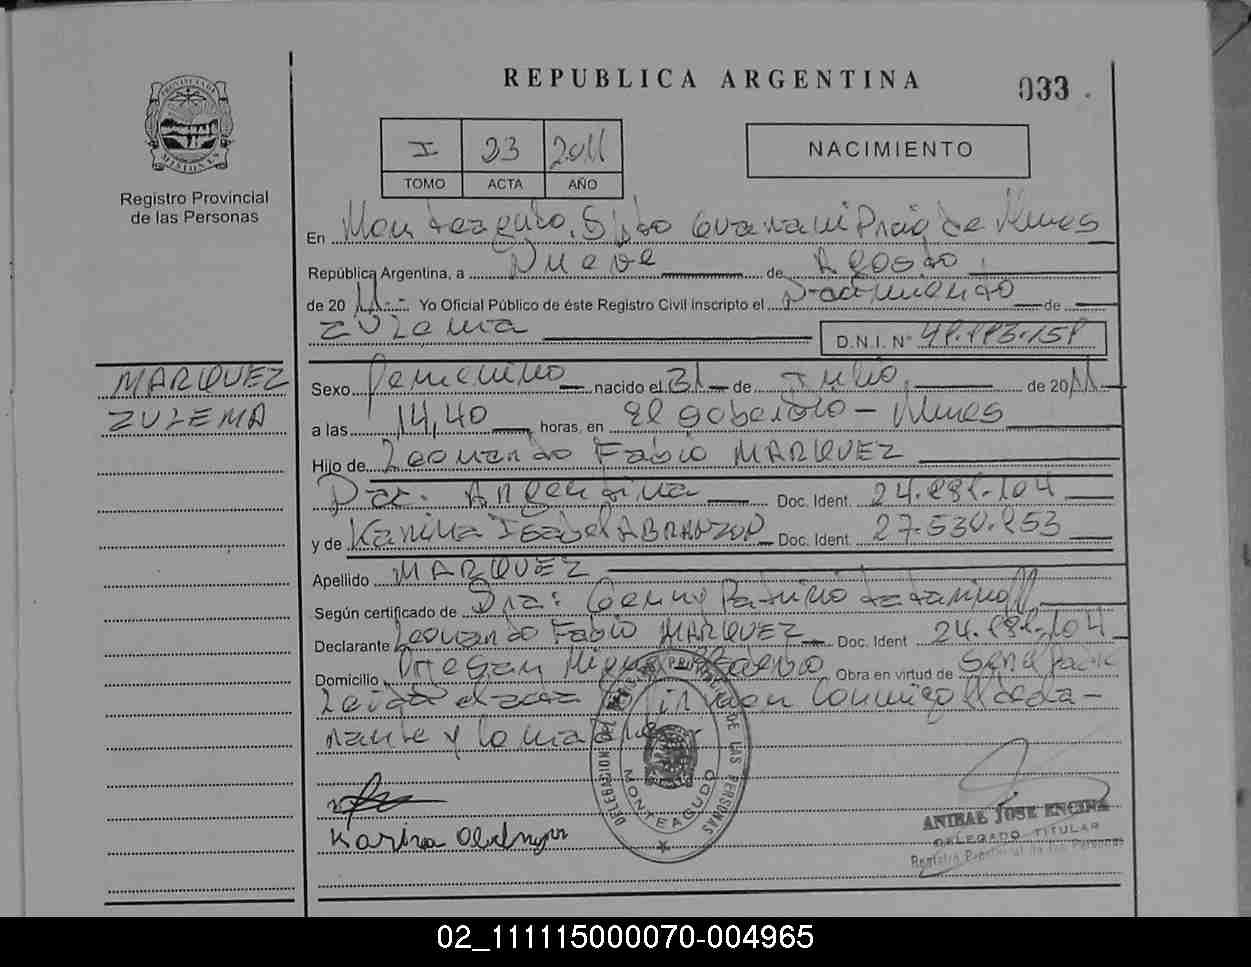 REPUBLICA ARGENTINA
033
PROVINCIA DE MISIONES
Registro Provincial
de las Personas
I 23 2011
TOMO ACTA AÑO
NACIMIENTO
En Monteagudo, Dpto Guarani Pcia de Mnes
República Argentina, a Nueve de Agosto
de 2011 Yo Oficial Público de éste Registro Civil inscripto el Nacimiento de
ZULema
D.N.I. N°
MARQUEZ
ZULEMA
Sexo Femenino nacido el 31 de Julio, de 2011
a las 14,40 horas, en El Soberbio - Mnes
Hijo de Leonardo Fabio MARQUEZ
Nac. Argentina Doc. Ident.
y de Karina Isabel Doc. Ident. 27.530.853
Apellido MARQUEZ
Según certificado de Dra:
Declarante Leonardo Fabio MARQUEZ Doc. Ident
Domicilio Obra en virtud de
Leida el acta firman conmigo el decla-
rante y la madre
DELEGACION DEL REGISTRO PROVINCIAL DE LAS PERSONAS
MONTEAGUDO
Karina
ANIBAL JOSE ENCINA
DELEGADO TITULAR
Registro Provincial de las Personas
02_111115000070-004965